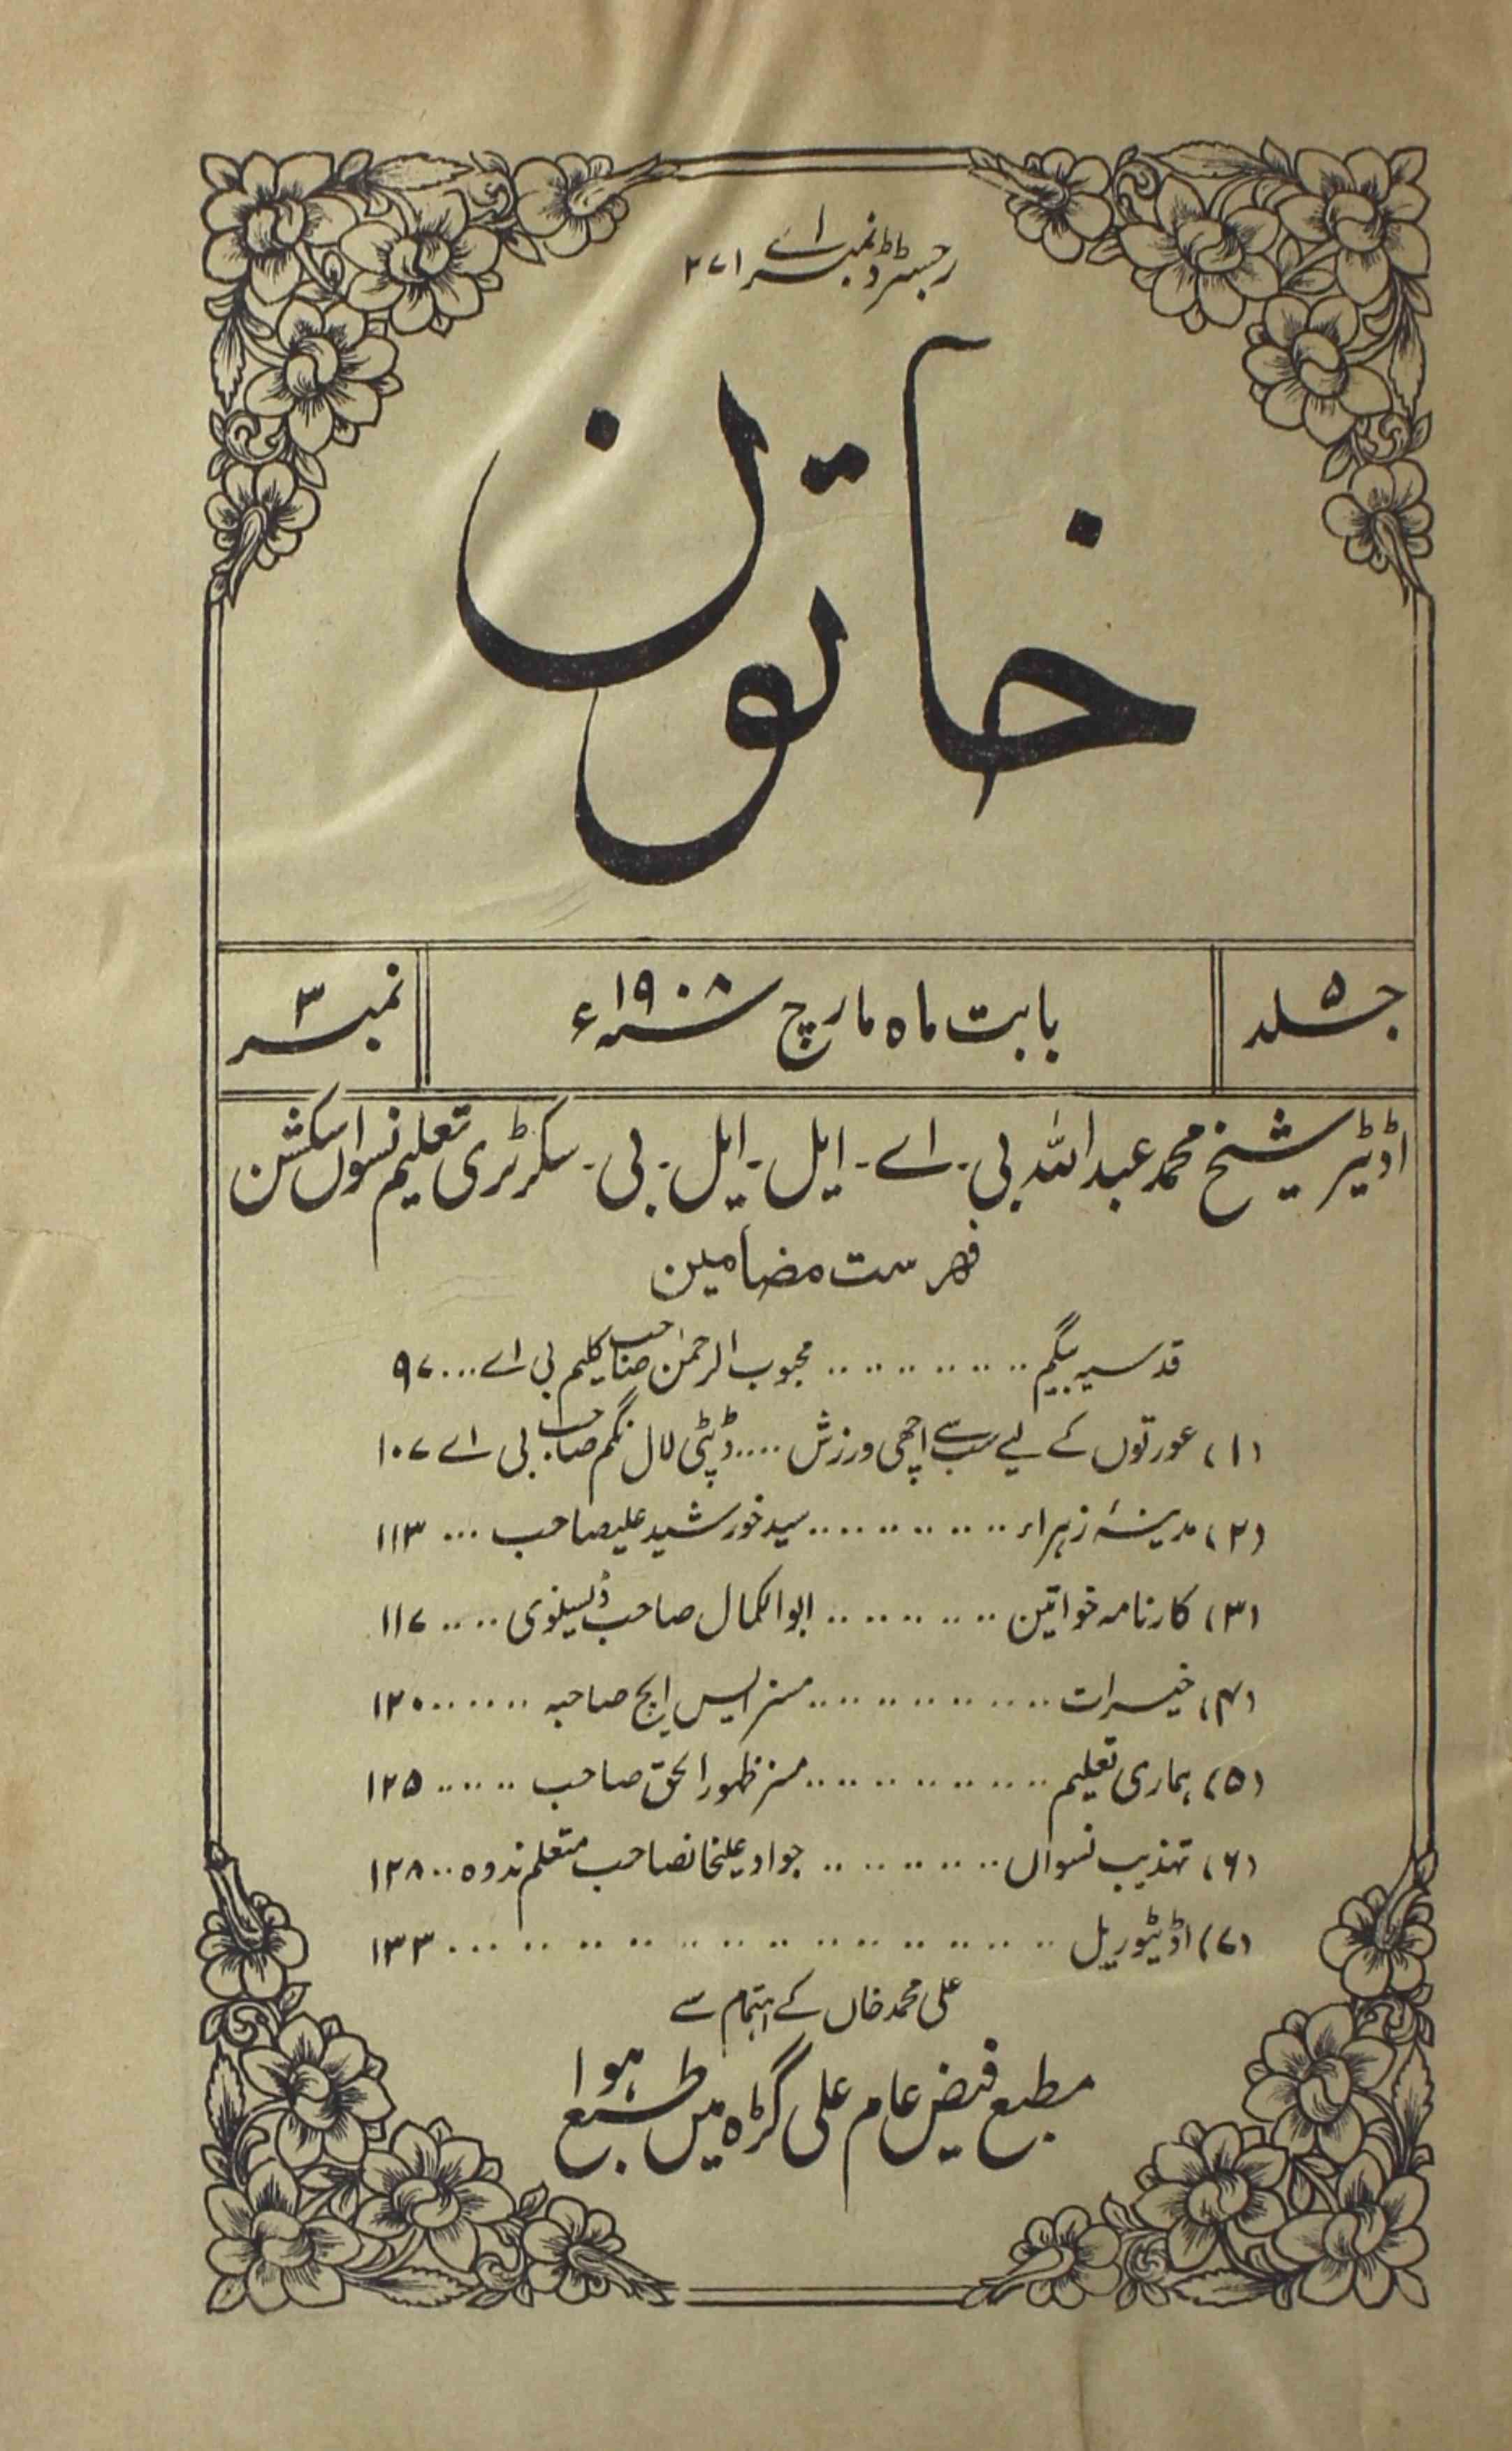 رجسٹرڈ نمبر اے ۲۷۱
خاتون
جلد ۵
بابت ماہ مارچ سنہ ۱۹۰۸ء
نمبر ۳
اڈیٹر شیخ محمد عبداللہ بی۔ اے۔ ایل۔ ایل۔ بی۔ سکرٹری تعلیم نسواں سکشن
فہرست مضامین
قدسیہ بیگم .. .. .. .. .. .. محبوب الرحمٰن صاحب کلیم بی اے ... ۹۷
(۱) عورتوں کے لیے سب سے اچھی ورزش .... ڈپٹی لال نگم صاحب بی اے ۱۰۷
(۲) مدینۂ زہراء .. .. .. .. .. .. سید خورشید علیصاحب ... ۱۱۳
(۳) کارنامہ خواتین .. .. .. .. .. ابوالکمال صاحب ڈیسلوی .. .. ۱۱۷
(۴) خیرات .. .. .. .. .. .. .. مسز ایس ایچ صاحبہ .. .. .. ۱۲۰
(۵) ہماری تعلیم .. .. .. .. .. .. .. مسز ظہور الحق صاحب .. .. .. ۱۲۵
(۶) تہذیب نسواں .. .. .. .. .. جواد علیخانصاحب متعلم ندوہ .. ۱۲۸
(۷) اڈیٹوریل .. .. .. .. .. .. .. .. .. .. .. .. .. ... ۱۳۳
علی محمد خاں کے اہتمام سے
مطبع فیض عام علی گڑہ میں طبع ہوا